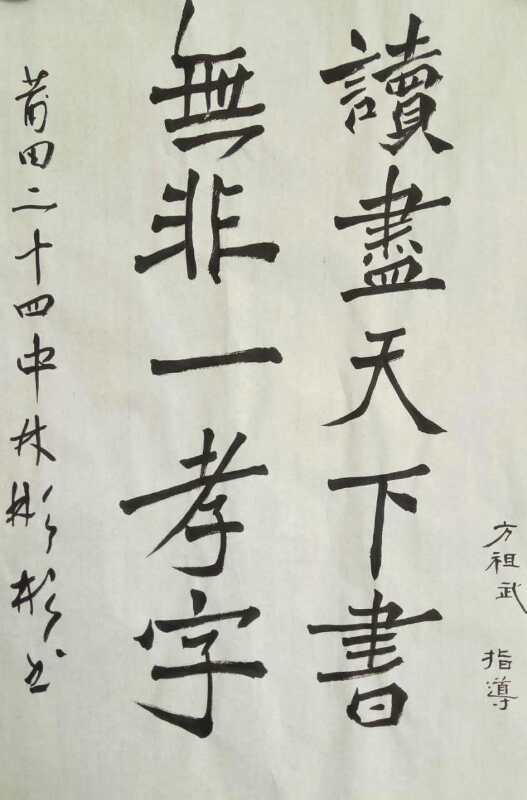 讀盡天下書
無非一孝字
莆田二十四中林彬彬书
方祖武 指導